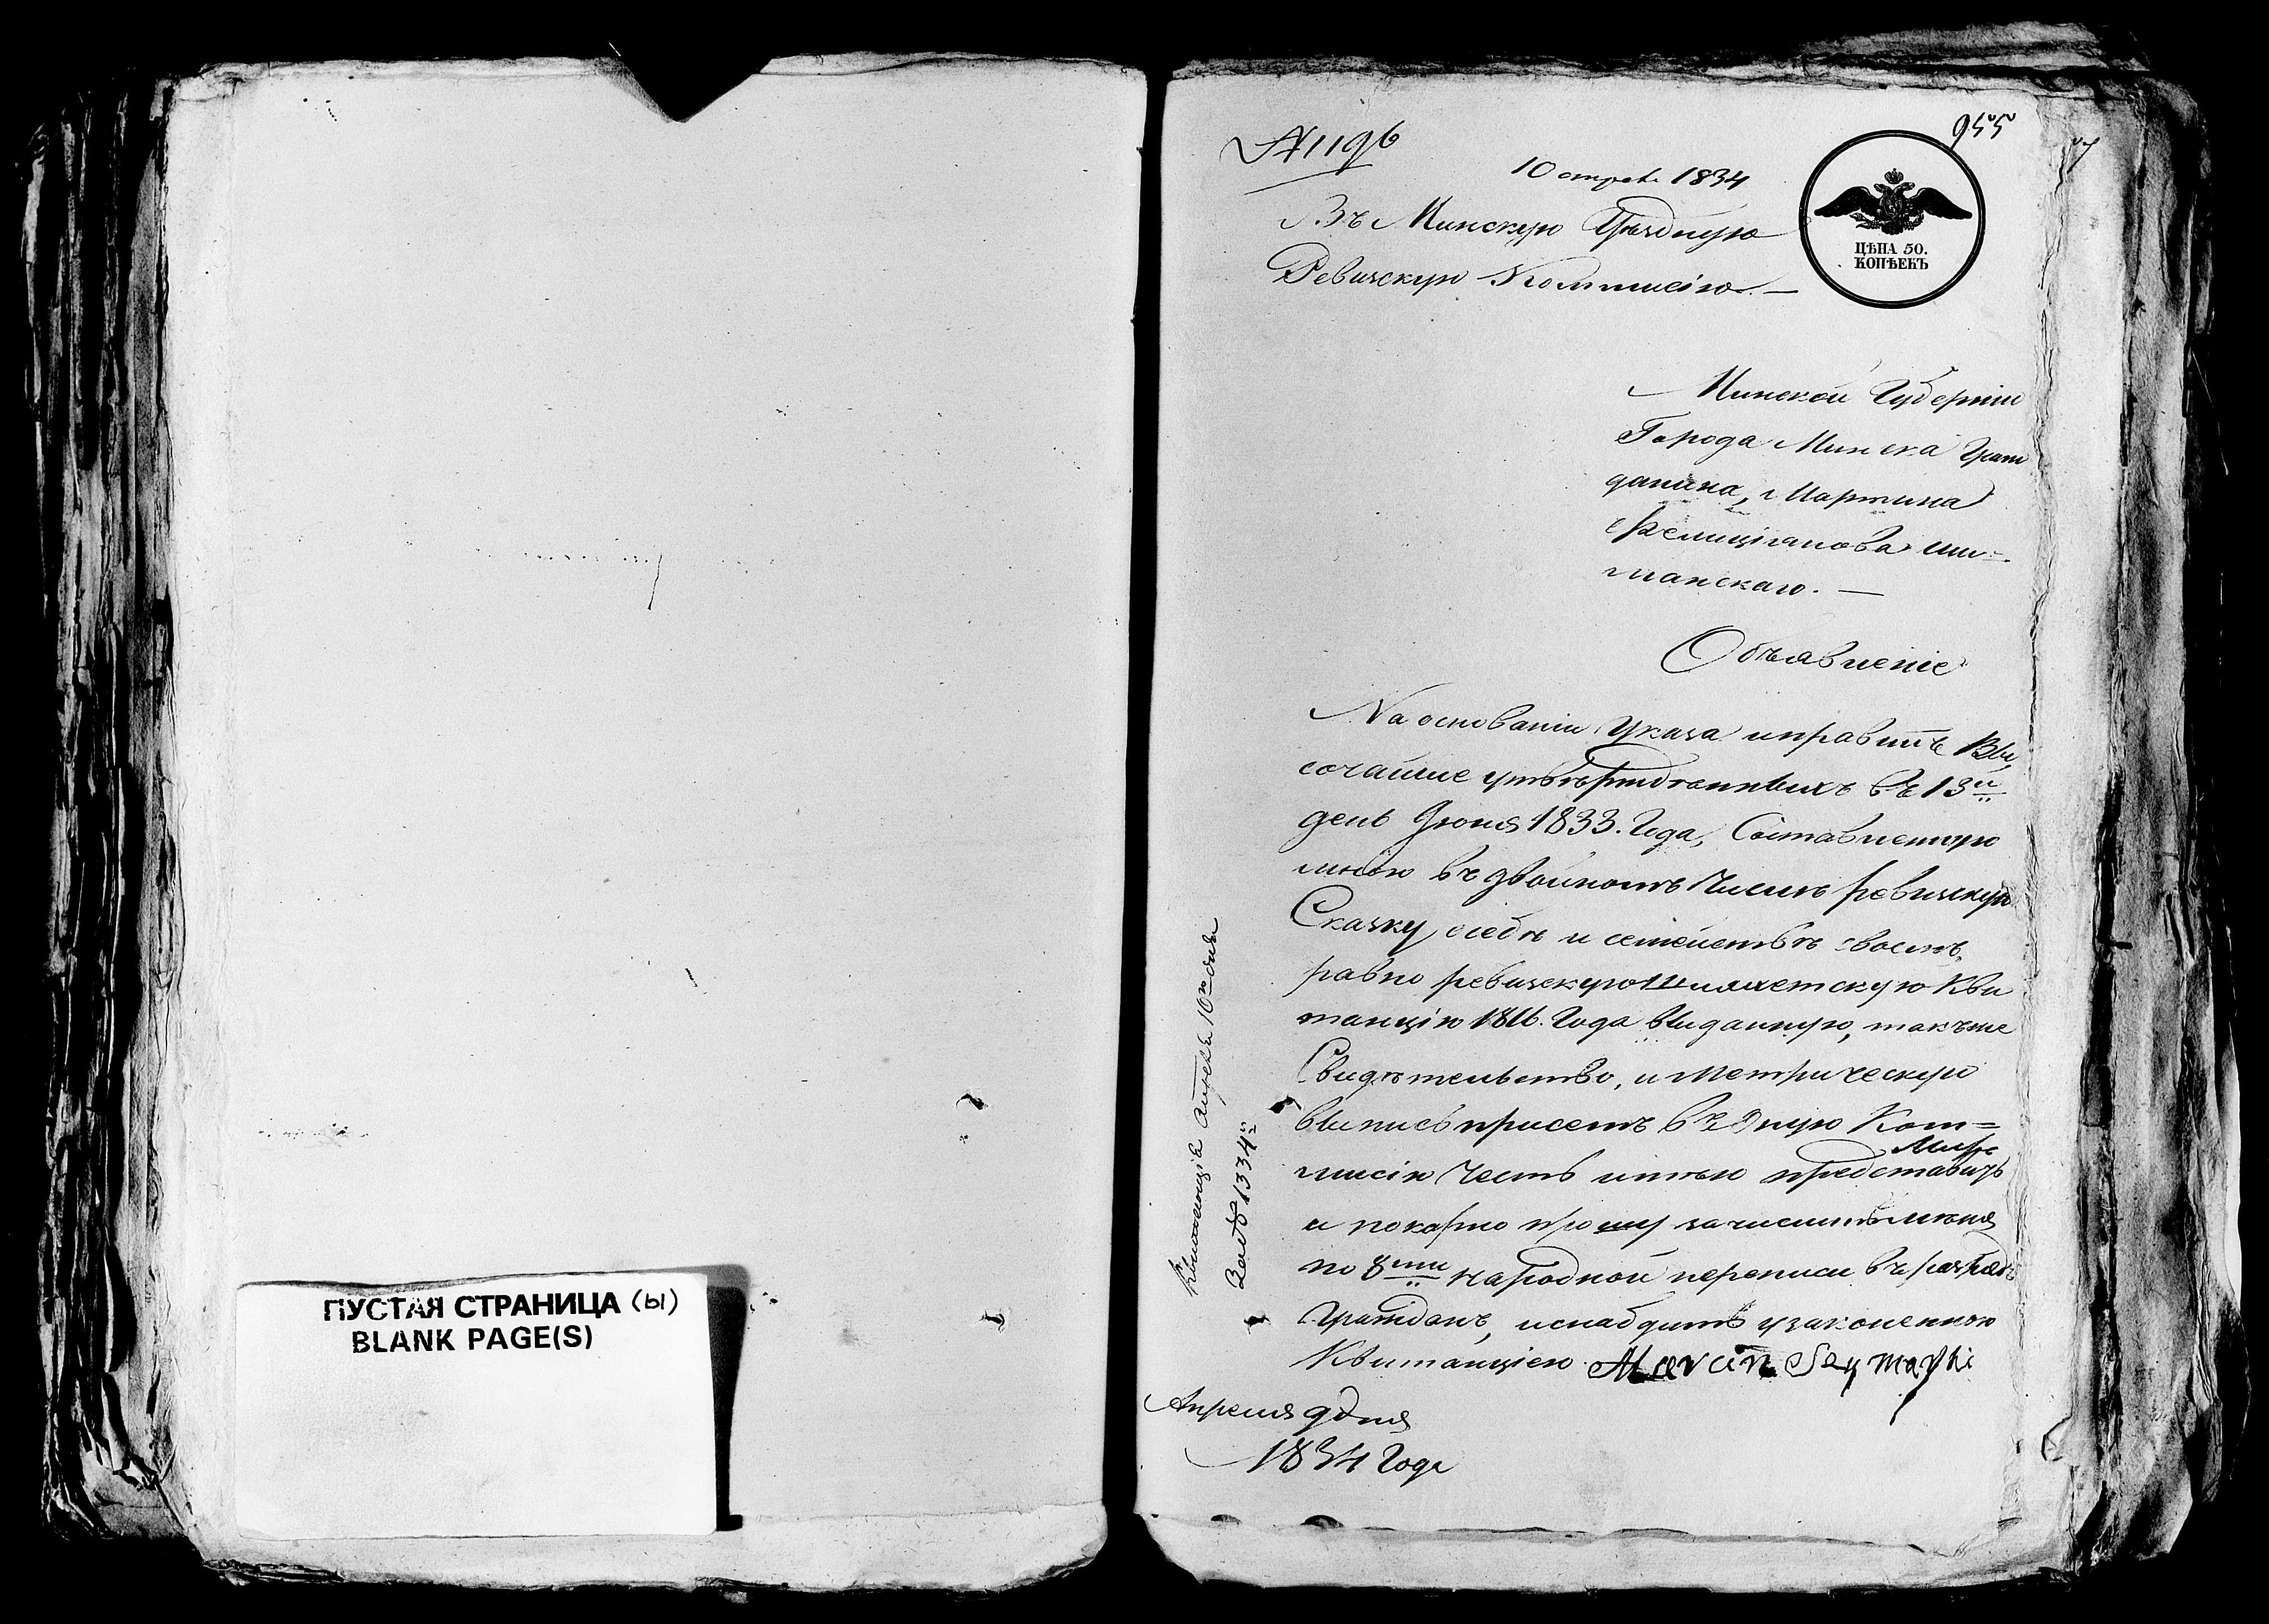 ПУСТАЯ СТРАНИЦА (ы)
BLANK PAGE(S)
№ 1196
955
10 1834
ЦѢНА 50.
КОПѢЕКЪ
Въ Минскую Уѣздную
Ревизскую Коммисію. —
Минской Губерніи
Города Минска Граж
данина, Мартина
Фелиціанова Ши=
манскаго. —
Объявленіе
На основаніи Указа и правилъ Вы
сочайше утвѣржденныхъ въ 13й
день Іюня 1833. Года, Составленную
мною въ двойномъ числѣ ревизскую
Сказку о себѣ и семействѣ своемъ,
равно ревизскую Шляхетскую Кви
танцію 1816. Года выданную, такъже
Свидѣтельство, и Метрическую
выпись присемъ въ Ком=
мисію честь имѣю представить
и покорно прошу зачислить меня
по 8ми народной переписи въ разрядъ
Гражданъ, и снабдить узаконенною
Квитанціею. Marcin Szymański
Апреля 9 дня
1834 Года
Квитанцію 10го дня
1334й